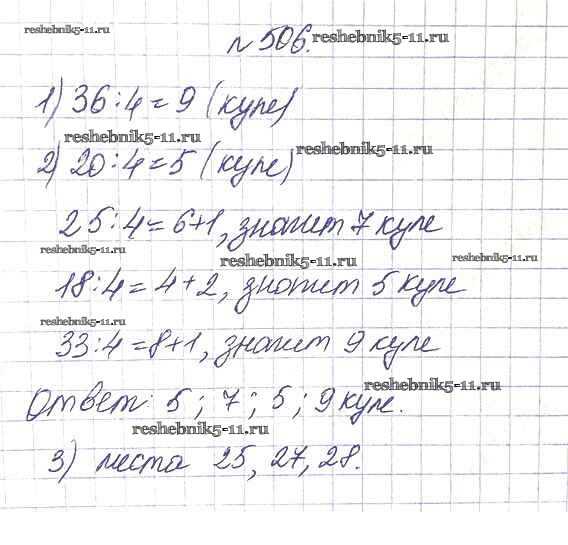 reshebnik5-11.ru
№ 506. reshebnik5-11.ru
1) 36:4=9 (купе)
reshebnik5-11.ru
2) 20:4=5 (купе) reshebnik5-11.ru
25:4=6+1, значит 7 купе
reshebnik5-11.ru reshebnik5-11.ru reshebnik5-11.ru
18:4=4+2, значит 5 купе
reshebnik5-11.ru
33:4=8+1, значит 9 купе
reshebnik5-11.ru
Ответ: 5; 7; 5; 9 купе.
reshebnik5-11.ru
3) места 25, 27, 28.